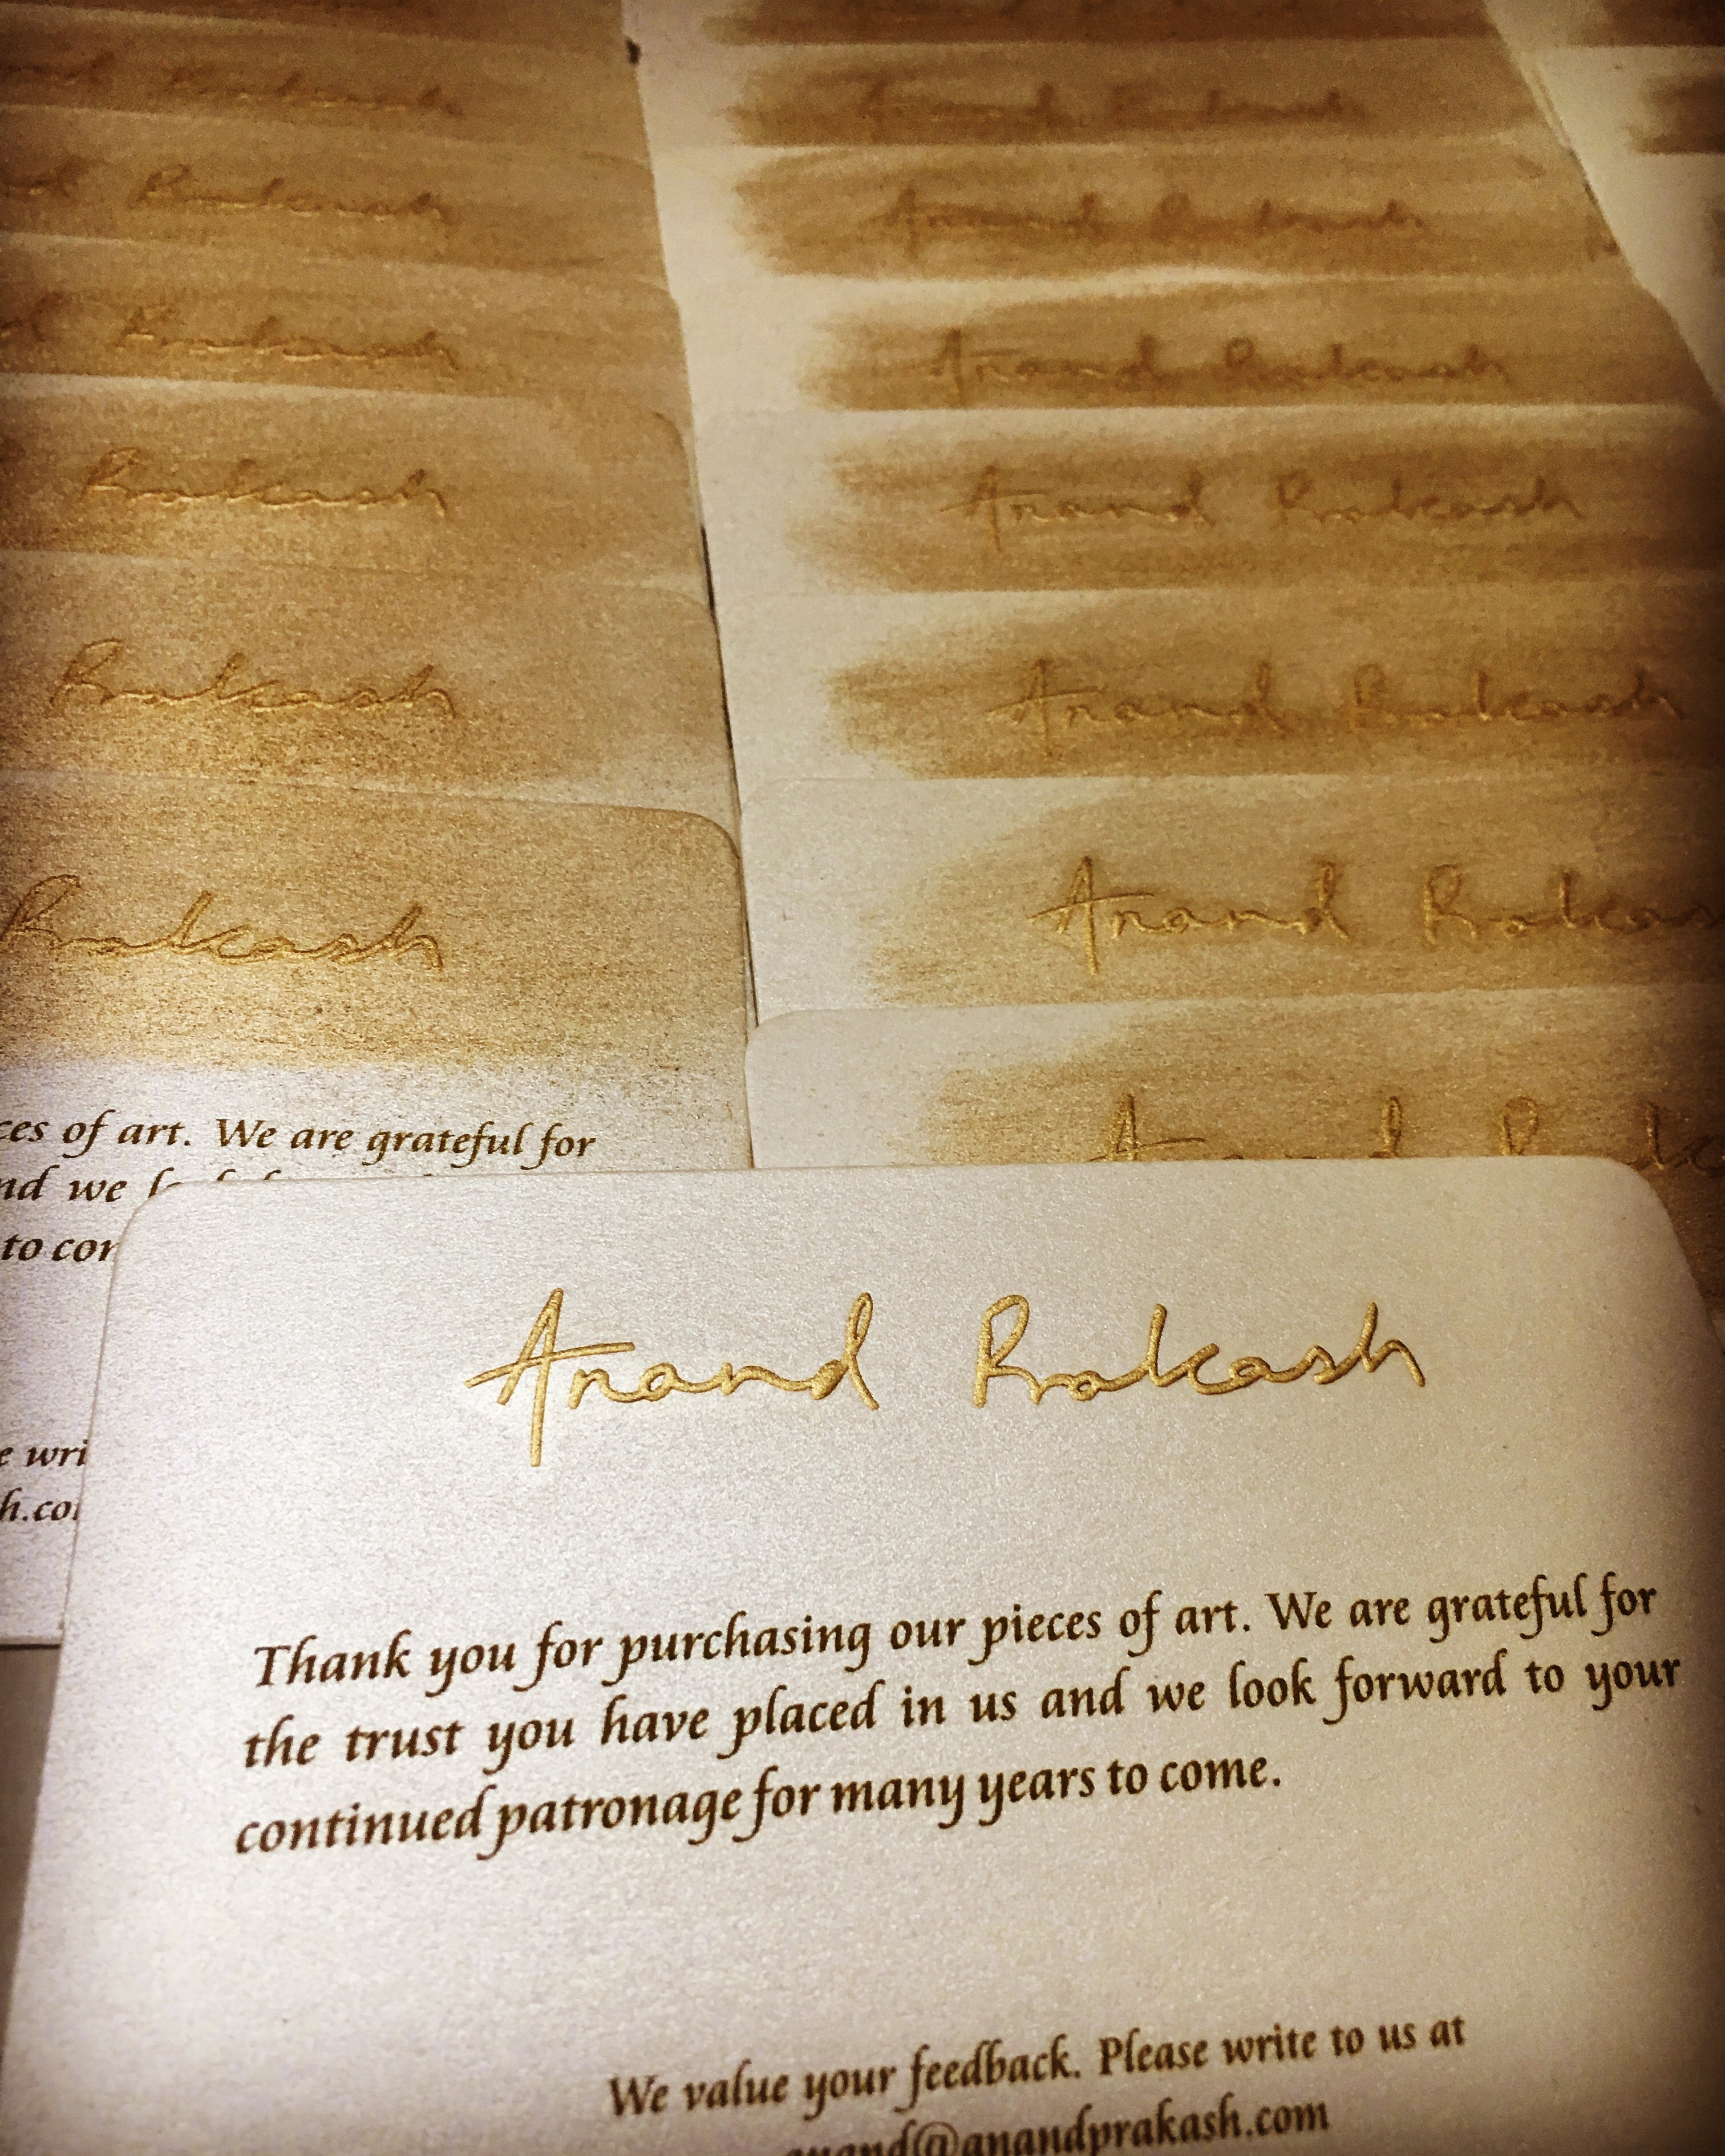 Anand Prakash
Anand Prakash
Anand Prakash
Anand Prakash
Anand Prakash
Anand
Prakash
Prakash
Prakash
Prakash
Prakash
of art. We are grateful for
we
to
Anand Prakash
Thank you for purchasing our pieces of art. We are grateful for
the trust you have placed in us and we look forward to your
continued patronage for many years to come.
We value your feedback. Please write to us at
anand@anandprakash.com